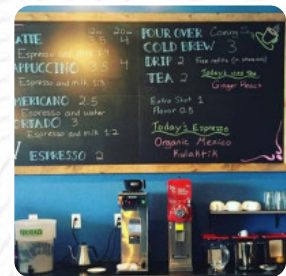 12oz 20oz
LATTE 3.5 4
Espresso and milk
CAPPUCCINO 3.5 4
Espresso and milk 1:3
AMERICANO 2.5
Espresso and water
CORTADO 3
Espresso and milk 1:2
ESPRESSO 2
POUR OVER Coming
COLD BREW 3
DRIP 2 Free refills (in shop only)
TEA 2 Today's iced tea
Ginger Peach
Extra Shot 1
Flavor 0.5
Today's Espresso
Organic Mexico
Kulaktik